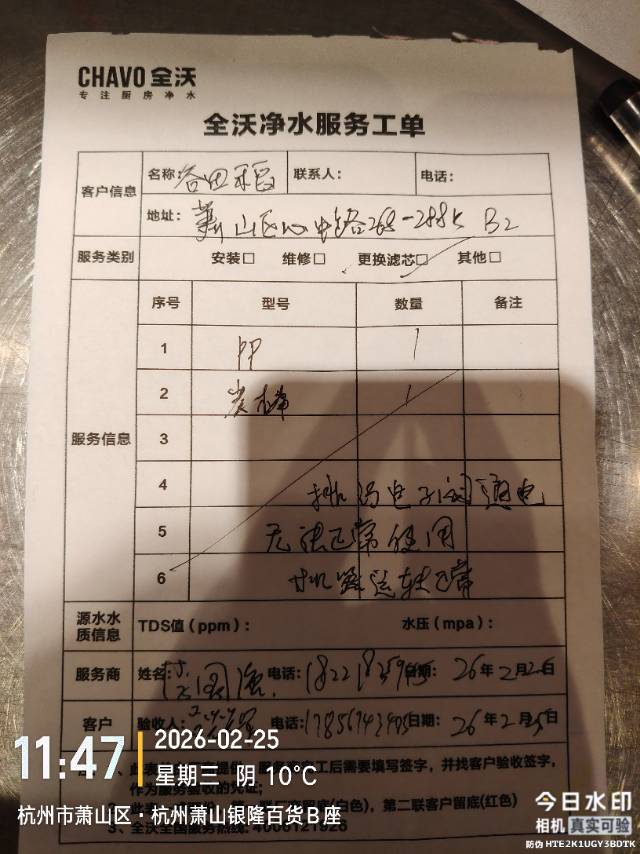 CHAVO 全沃
专注厨房净水
全沃净水服务工单
客户信息
名称：谷田稻
联系人：
电话：
地址：萧山区心中路268-288号 B2
服务类别
安装□ 维修□ 更换滤芯□ 其他□
服务信息
序号 型号 数量 备注
1 PP 1
2 炭棒 1
3
4 排污电子阀通电
5 无法正常使用
6 机器运转正常
源水水质信息
TDS值（ppm）： 水压（mpa）：
服务商 姓名： 电话： 日期： 26年2月25日
客户 验收人： 电话：17856743405 日期：26年2月25日
后需要填写签字，并找客户验收签字，
作为服务验收的凭证；
(白色)，第二联客户留底(红色)
3、全沃全国服务热线：4006121926
11:47
2026-02-25
星期三 阴 10°C
杭州市萧山区·杭州萧山银隆百货B座
今日水印
相机 真实可验
防伪 HTE2K1UGY3BDTK